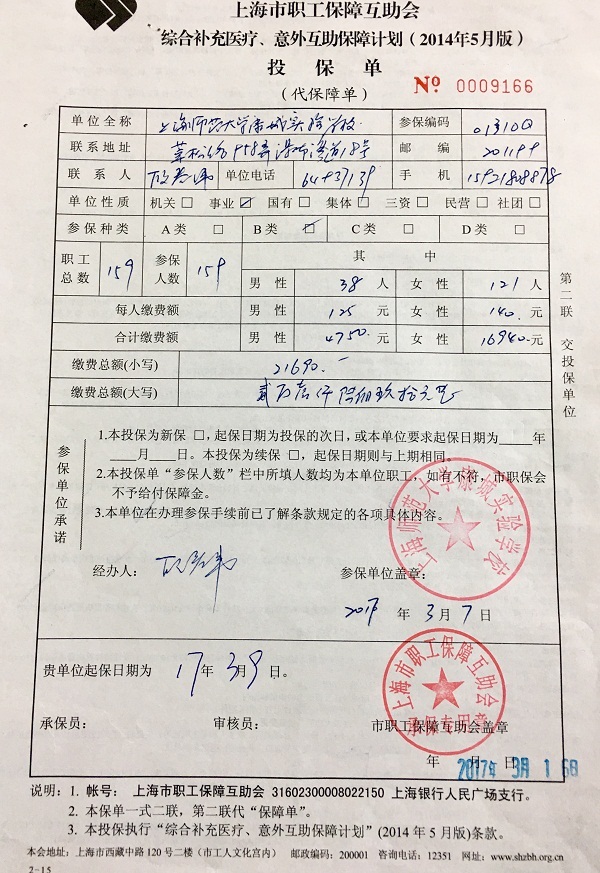 上海市职工保障互助会
综合补充医疗、意外互助保障计划（2014年5月版）
投 保 单
（代保障单）
№ 0009166
单位全称 上海师范大学康城实验学校 参保编码
联系地址 邮 编 201199
联 系 人 单位电话 64937139 手 机 15921808878
单位性质 机关□ 事业☑ 国有□ 集体□ 三资□ 民营□ 社团□
参保种类 A类 □ B类 ☑ C类 □ D类 □
职工总数 159 参保人数 159 其 中
男 性 38 人 女 性 121 人
每人缴费额 男 性 125 元 女 性 140. 元
合计缴费额 男 性 4750. 元 女 性 16940. 元
缴费总额(小写) 21690.—
缴费总额(大写) 贰万壹仟陆佰玖拾元
第二联 交投保单位
参保单位承诺
1.本投保为新保 □，起保日期为投保的次日，或本单位要求起保日期为____年
____月____日。本投保为续保 □，起保日期则与上期相同。
2.本投保单“参保人数”栏中所填人数均为本单位职工，如有不符，市职保会
不予给付保障金。
3.本单位在办理参保手续前已了解条款规定的各项具体内容。
上海师范大学康城实验学校
经办人： 参保单位盖章：
2017 年 3 月 7 日
贵单位起保日期为 17 年 3月 9 日。
上海市职工保障互助会
承保专用章
承保员： 审核员： 市职工保障互助会盖章
年 月 日
2017年 3月 16日
说明：1. 帐号： 上海市职工保障互助会 31602300008022150 上海银行人民广场支行。
2. 本保单一式二联，第二联代“保障单”。
3. 本投保执行“综合补充医疗、意外互助保障计划”(2014 年 5 月版)条款。
本会地址：上海市西藏中路 120 号二楼（市工人文化宫内） 邮政编码：200001 咨询电话：12351 网址：www.shzbh.org.cn
2-15